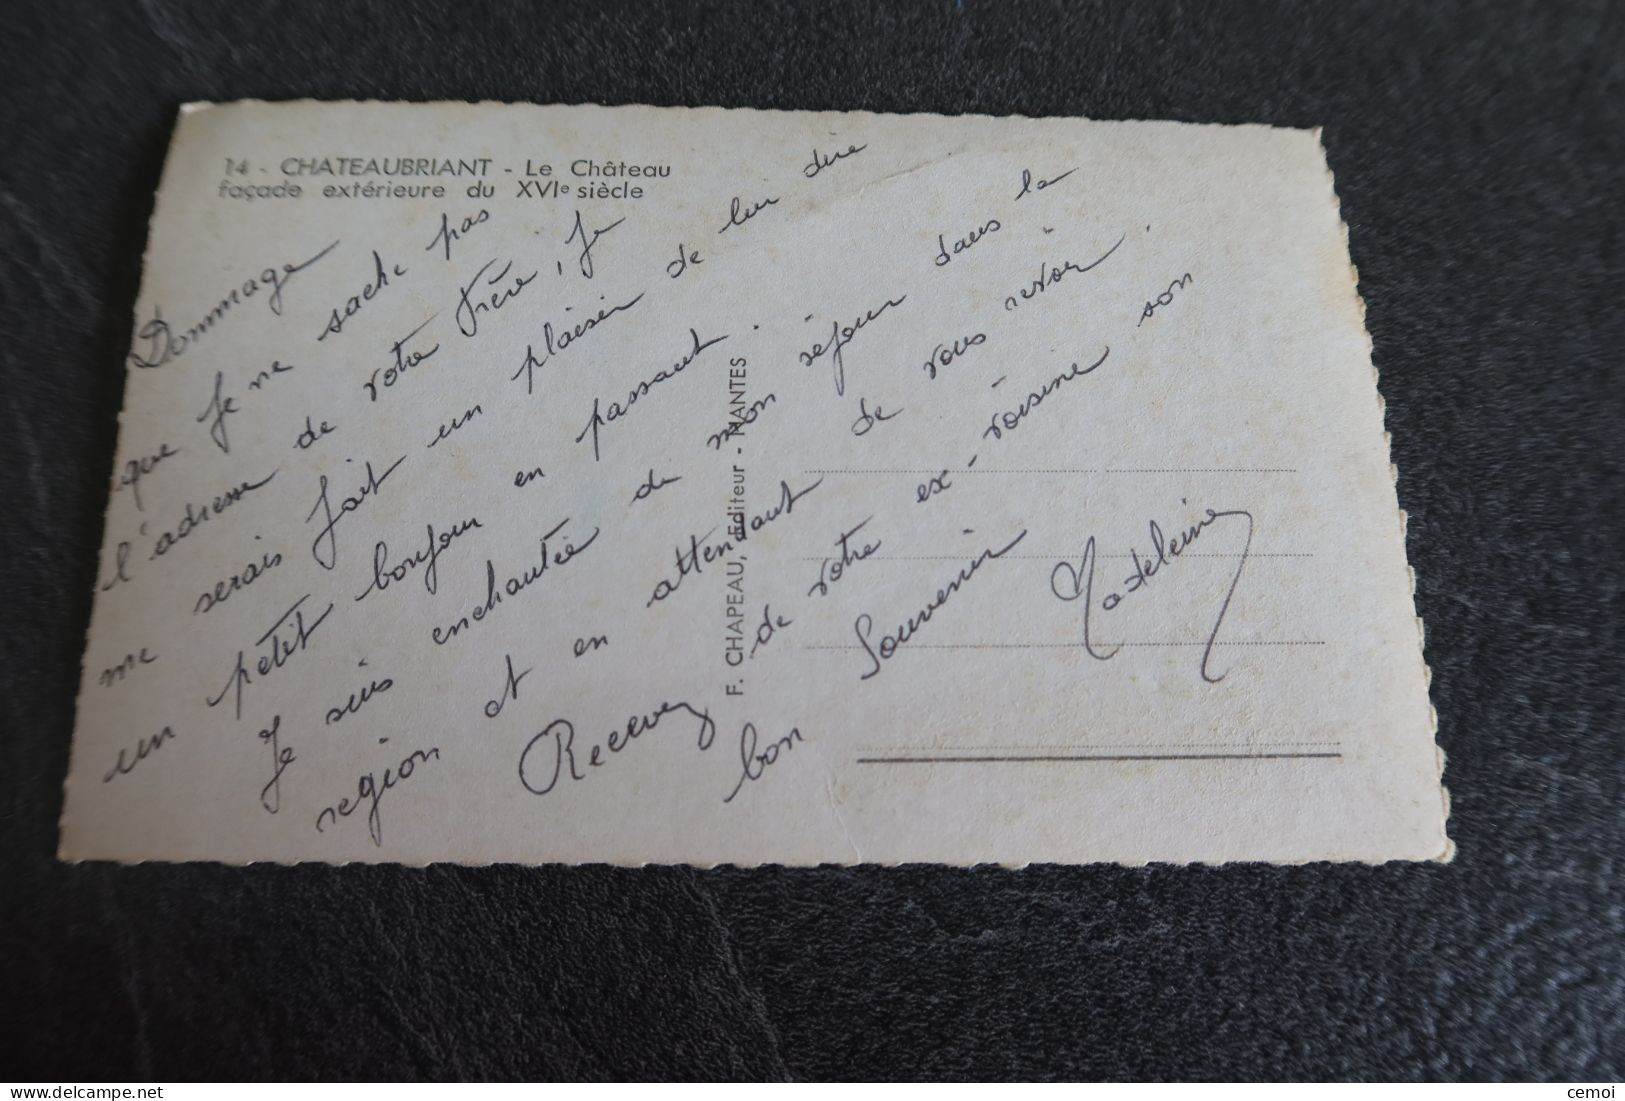 14 - CHATEAUBRIANT - Le Château
façade extérieure du XVIe siècle
Dommage
que je ne sache pas
l'adresse de votre frère, je
me serais fait un plaisir de lui dire
un petit bonjour en passant.
Je suis enchantée de mon séjour dans la
region et en attendant de vous revoir.
Recevez de votre ex-voisine son
bon Souvenir
Madeleine
F. CHAPEAU, Editeur - NANTES
cemoi